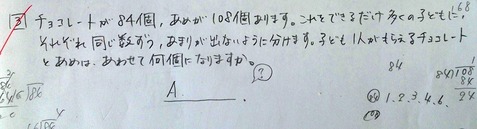 3 チョコレートが84個,あめが108個あります。これをできるだけ多くの子どもに,
それぞれ同じ数ずつ,あまりが出ないように分けます。子ども1人がもらえるチョコレート
とあめは,あわせて何個になりますか。
?
A.
168
84
1
84)108
84
24
84 1.2.3.4.6.
108